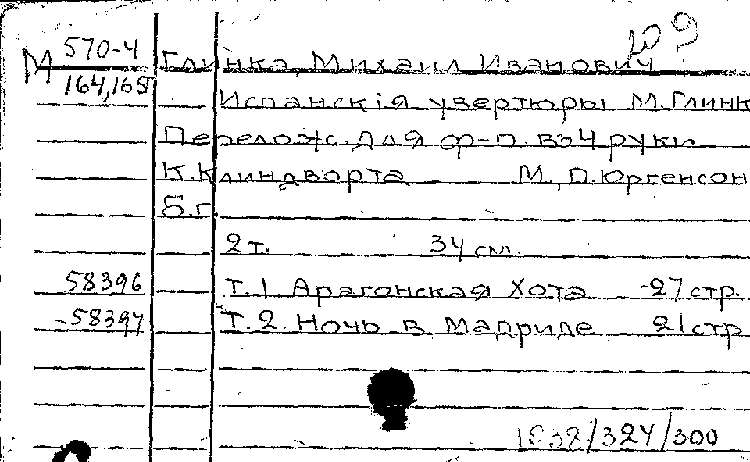 М 570-4
164,165
Глинка, Михаил Иванович
Испанскія увертюры М.Глинк
Перелож. для ф-п. в 4 руки
К.Клиндворта М, П.Юргенсон
Б.г.
2 т. 34 см.
58396 Т.1 Арагонская Хота -27 стр.
-58397 Т.2. Ночь в Мадриде 21 стр
1932/324/300